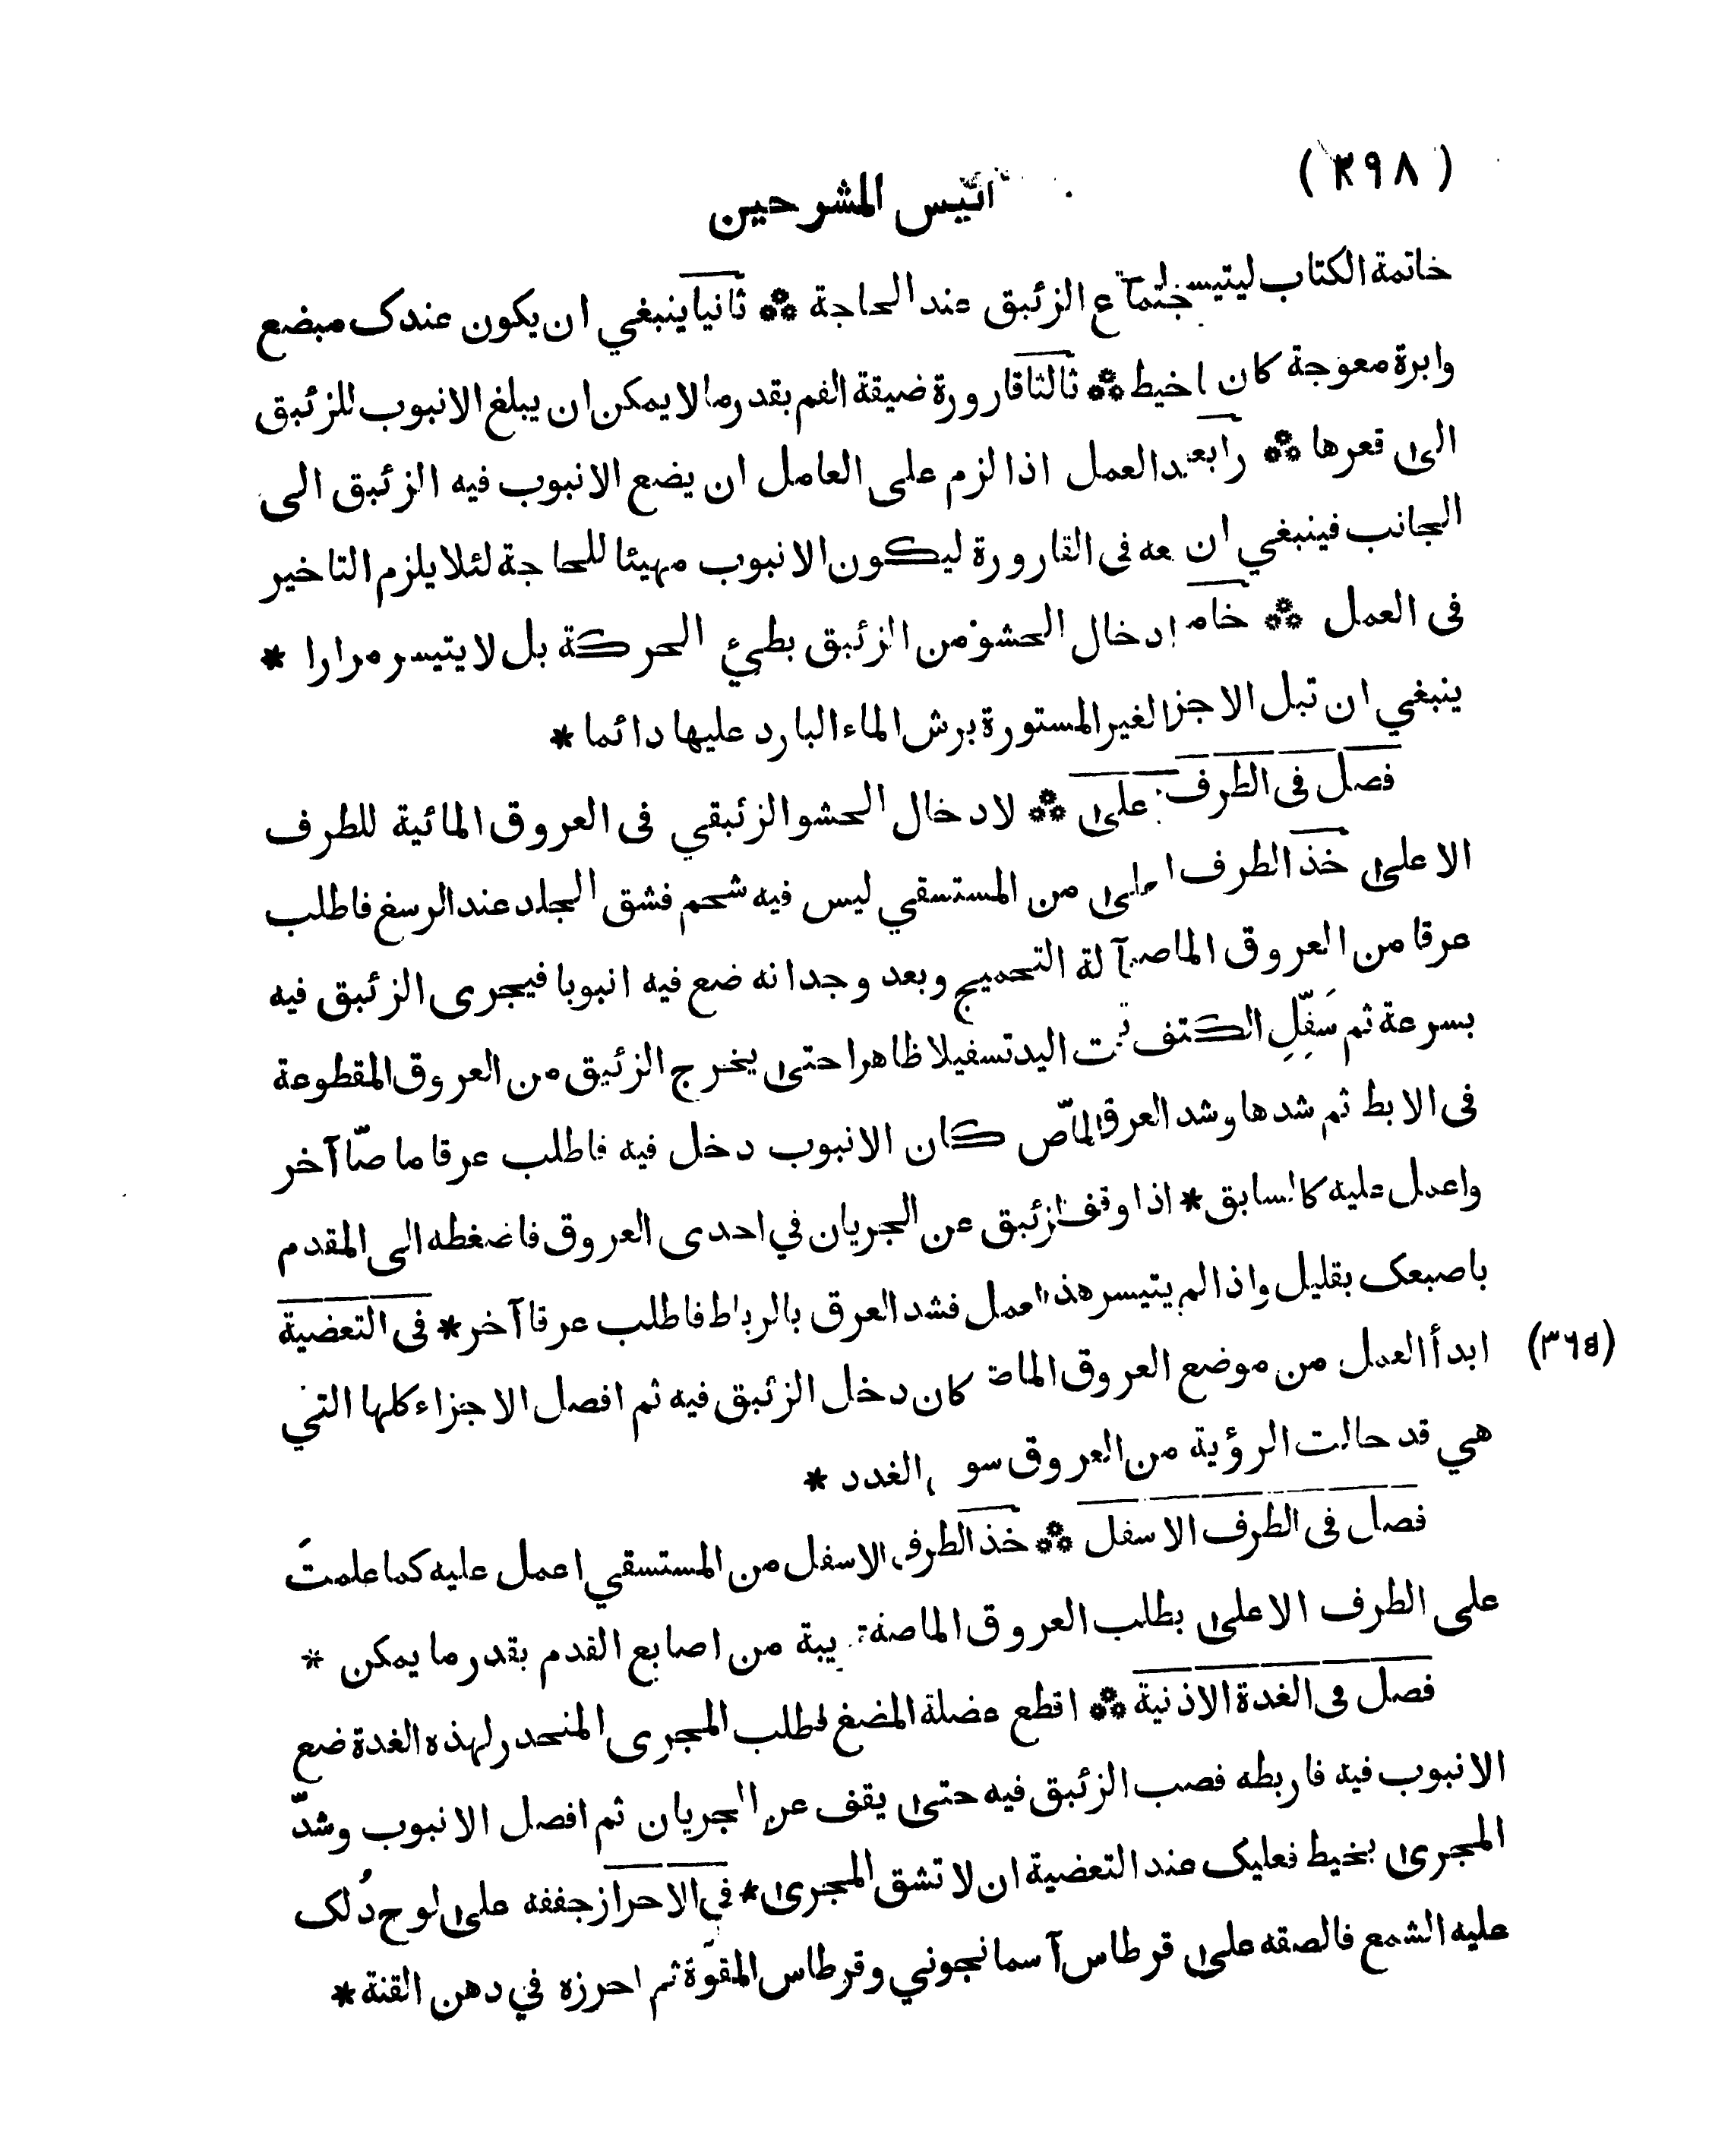 (٣٩٨)
انيس المشرحين
خاتمة الكتاب ليتيسر اجتماع الزئبق عند الحاجة ⁂ ثانيا ينبغي ان يكون عندك مبضع
وابرة معوجة كان اخيط ⁂ ثالثا قارورة ضيقة الفم بقدر ما لا يمكن ان يبلغ الانبوب للزئبق
الى قعرها ⁂ العمل اذا لزم على العامل ان يضع الانبوب فيه الزئبق الى
الجانب فينبغي ان القارورة ليكون الانبوب مهيئا للحاجة لئلا يلزم التاخير
فى العمل ⁂ ادخال الحشو من الزئبق بطئ الحركة بل لا يتيسر مرارا *
ينبغي ان تبل الغير المستورة برش الماء البارد عليها دائما *
فصل فى الطرف ⁂ لادخال الحشو الزئبقي فى العروق المائية للطرف
الاعلى خذ الطرف من المستسقي ليس فيه شحم فشق الجلد عند الرسغ فاطلب
عرقا من العروق آلة التحميج وبعد وجدانه ضع فيه انبوبا فيجرى الزئبق فيه
بسرعة ثم سَفِّلِ الكتف اليد تسفيلا ظاهرا حتى يخرج الزئبق من العروق المقطوعة
فى الابط ثم شدها وشد العرق الماصّ كان الانبوب دخل فيه فاطلب عرقا ماصّا آخر
واعمل عليه كالسابق * اذا وقف الزئبق عن الجريان في احدى العروق فاضغطه الى المقدم
باصبعك بقليل واذا لم يتيسر هذا العمل فشد العرق بالرباط فاطلب عرقا آخر * فى التعضية
(٣٦٤) ابدأ العمل من موضع العروق كان دخل الزئبق فيه ثم افصل الاجزاء كلها التي
هي قد حالت الرؤية من العروق سوى الغدد *
فصل فى الطرف الاسفل ⁂ خذ الطرف الاسفل من المستسقي اعمل عليه كما علمتَ
على الطرف الاعلى بطلب العروق الماصة من اصابع القدم بقدر ما يمكن *
فصل فى الغدة الاذنية ⁂ اقطع عضلة المضغ لطلب المجرى المنحدر لهذه الغدة ضع
الانبوب فيه فاربطه فصب الزئبق فيه حتى يقف عن الجريان ثم افصل الانبوب وشدّ
المجرى بخيط فعليك عند التعضية ان لا تشق المجرى * في الاحراز جففه على لوح دُلك
عليه الشمع فالصقه على قرطاس آسمانجوني وقرطاس المقوّة ثم احرزه في دهن القنة *